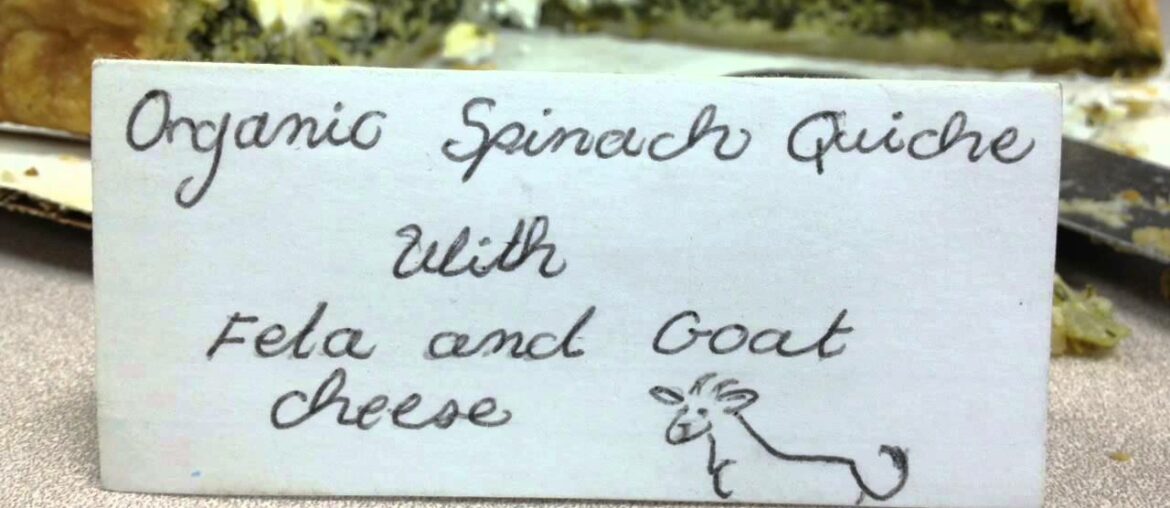 Organic Spinach Quiche
With
Feta and Goat
cheese